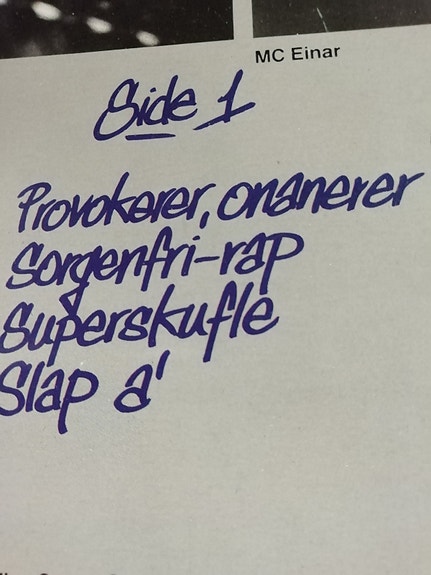 MC Einar
Side 1
Provokerer, onanerer
Sorgenfri-rap
Superskufle
Slap a'